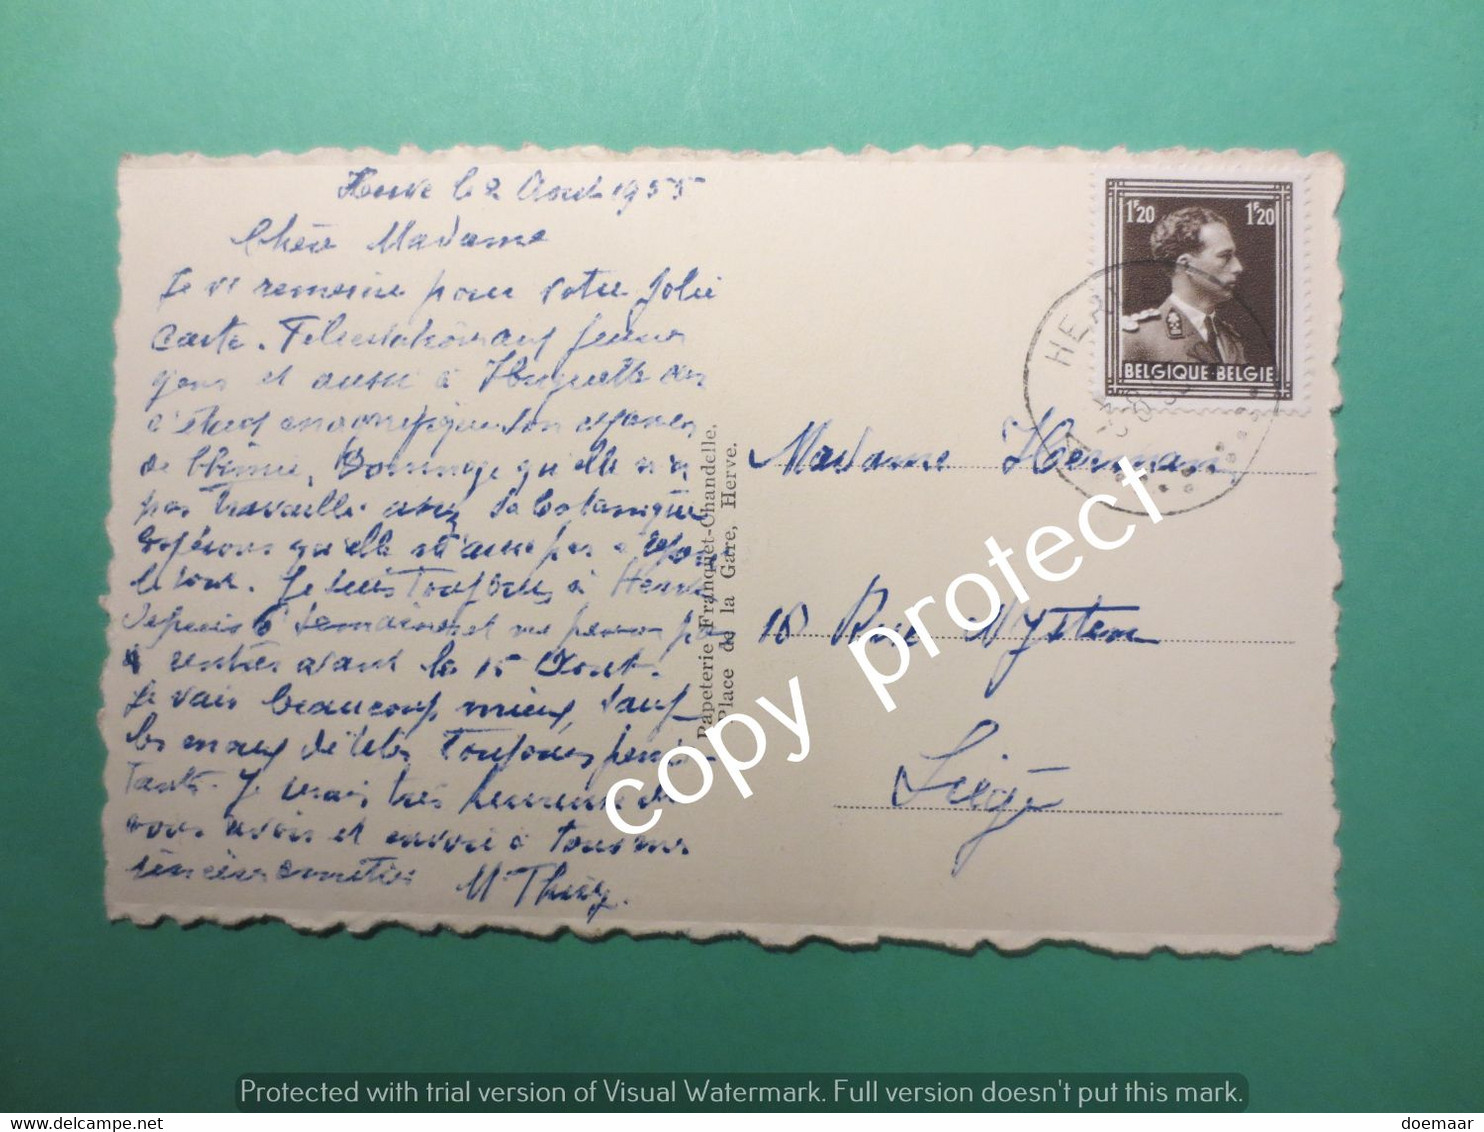 Herve le 2 Aout 1955
Chère Madame
Je vs remercie pour votre jolie
carte. Félicitations aux jeunes
gens et aussi à Huguette
de Chimie. Dommage qu'elle n'a
pas travaillé avec la botanique
Espérons qu'elle n'aura pas à
le tout. Je suis toujours à Herve
depuis 6 semaines et ne pense pas
rentrer avant le 15 Aout.
Je vais beaucoup mieux, sauf
les maux de têtes toujours persis-
tants. Je serais très heureuse de
vous revoir et envoie à tous mes
sincères amitiés Mme Thiry.
Papeterie Franquet-Chandelle,
Place de la Gare, Herve.
1F20 1F20
BELGIQUE-BELGIE
HERVE
Madame Herman
18 Rue Wystem
Liège
copy protect
Protected with trial version of Visual Watermark. Full version doesn't put this mark.
doemaar